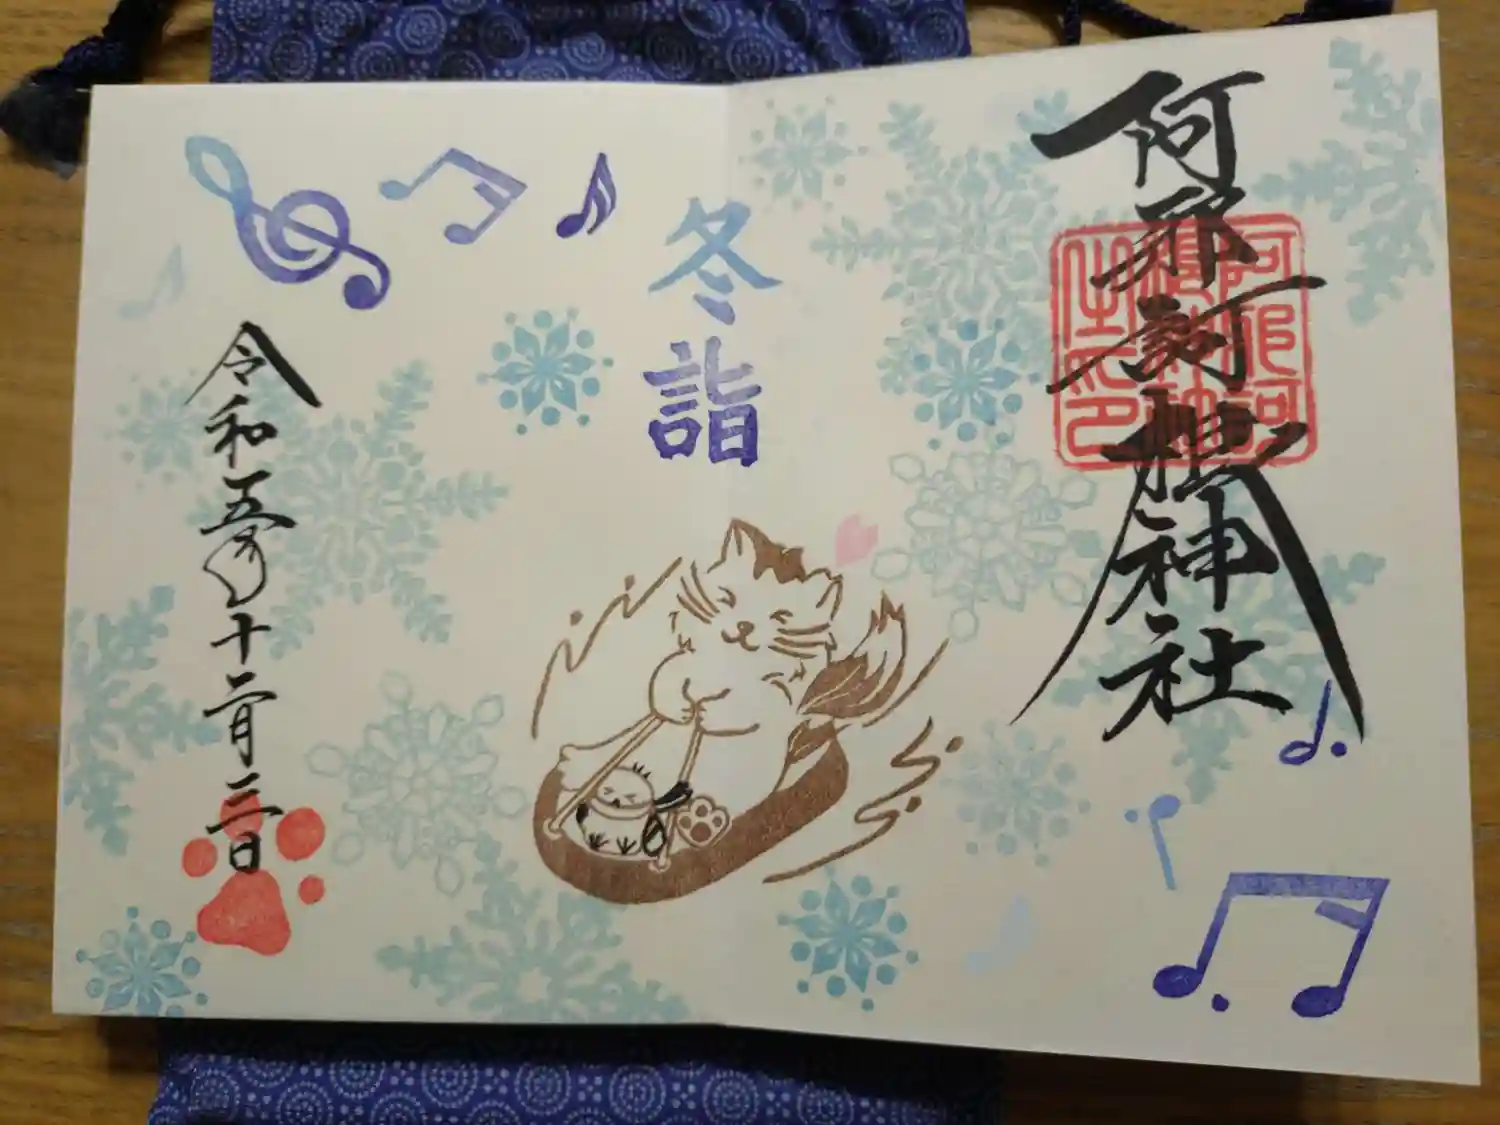 阿邪訶根神社
冬詣
令和五年十二月三日